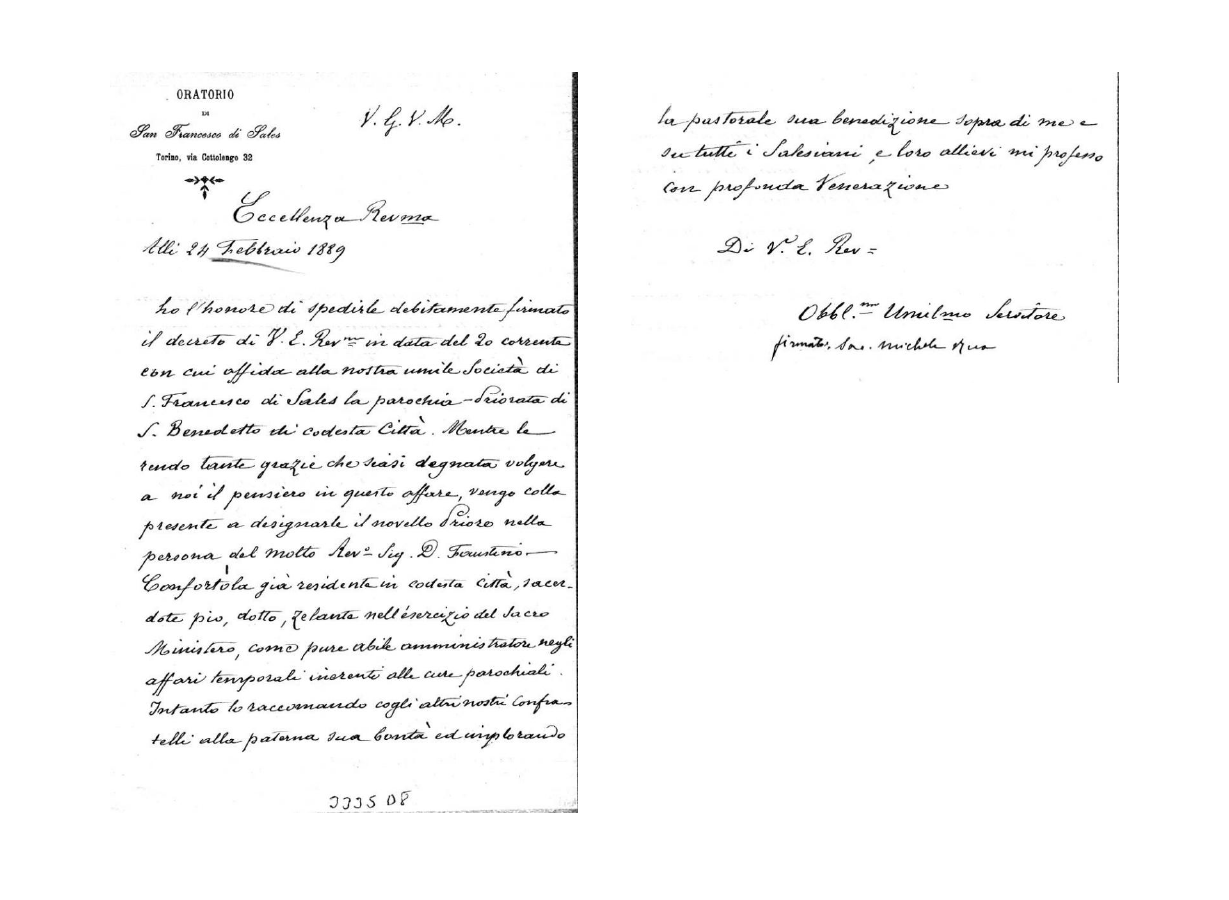 ORATORIO
DI
San Francesco di Sales
Torino, via Cottolengo 32
V. G. V. M.
Eccellenza Revma
Alli 24 Febbraio 1889
ho l'honore di spedirle debitamente firmato
il decreto di V. E. Revma in data del 20 corrente
con cui affida alla nostra umile Società di
S. Francesco di Sales la parochia-Priorata di
S. Benedetto di codesta Città. Mentre le
rendo tante grazie che siasi degnata volgere
a noi il pensiero in questo affare, vengo colla
presente a designarle il novello Priore nella
persona del molto Revo Sig. D. Faustino
Confortòla già residente in codesta Città, sacer-
dote pio, dotto, zelante nell'esercizio del Sacro
Ministero, come pure abile amministratore negli
affari temporali inerenti alle cure parochiali.
Intanto lo raccomando cogli altri nostri Confra-
telli alla paterna sua bontà ed implorando
333S D8
la pastorale sua benedizione sopra di me e
su tutti i Salesiani e loro allievi mi professo
con profonda Venerazione
Di V. E. Rev=
Obbl.mo Umilmo Servitore
firmato: Sac. Michele Rua